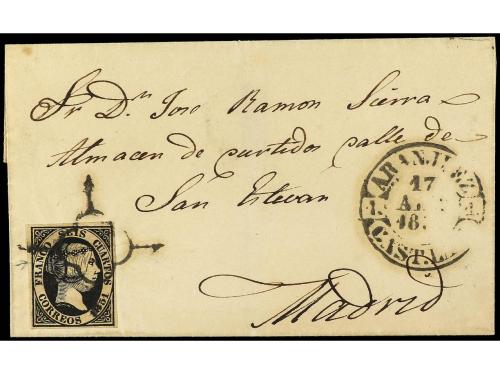 Sr. Dn. Jose Ramon Sierra
Almacen de curtidos calle de
San Estevan
Madrid
ARANJUEZ
17
CAST.LA
FRANCO SEIS CUARTOS
CORREOS 1851